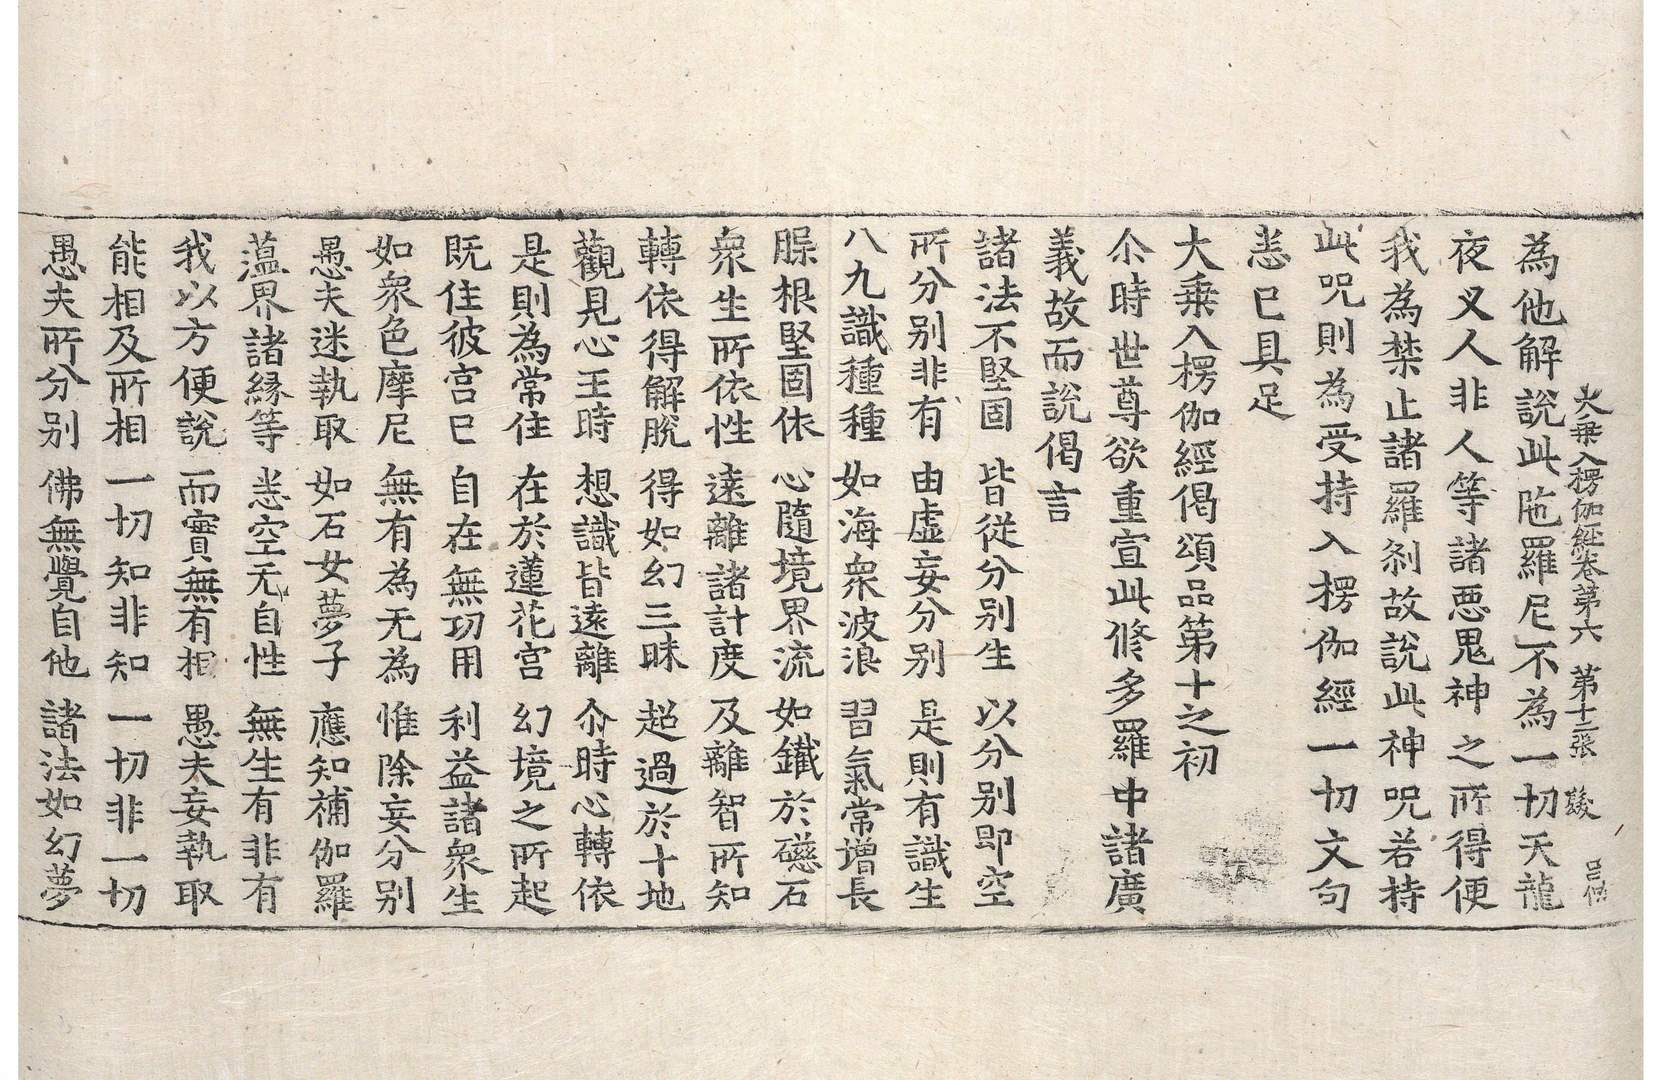 大乗入楞伽経卷第六　第十二張　發　吕俶
為他解說此陁羅尼不為一切天龍
夜叉人非人等諸惡鬼神之所得便
我為禁止諸羅剎故說此神呪若持
此呪則為受持入楞伽經一切文句
悉已具足
大乗入楞伽經偈頌品第十之初
尒時世尊欲重宣此修多羅中諸廣
義故而說偈言
諸法不堅固　皆從分别生　以分别即空
所分别非有　由虛妄分别　是則有識生
八九識種種　如海衆波浪　習氣常增長
𣘺根堅固依　心隨境界流　如鐵於礠石
衆生所依性　遠離諸計度　及離智所知
轉依得解脫　得如幻三昧　超過於十地
觀見心王時　想識皆遠離　尒時心轉依
是則為常住　在於蓮花宫　幻境之所起
既住彼宫已　自在無功用　利益諸衆生
如衆色摩尼　無有為无為　惟除妄分别
愚夫迷執取　如石女夢子　應知補伽羅
薀界諸緣等　悉空无自性　無生有非有
我以方便說　而實無有相　愚夫妄執取
能相及所相　一切知非知　一切非一切
愚夫所分别　佛無覺自他　諸法如幻夢